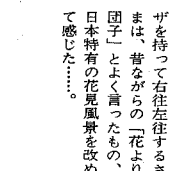 ザを持って右往左往するさ
まは、昔ながらの「花より
団子」とよく言ったもの、
日本特有の花見風景を改め
て感じた……。